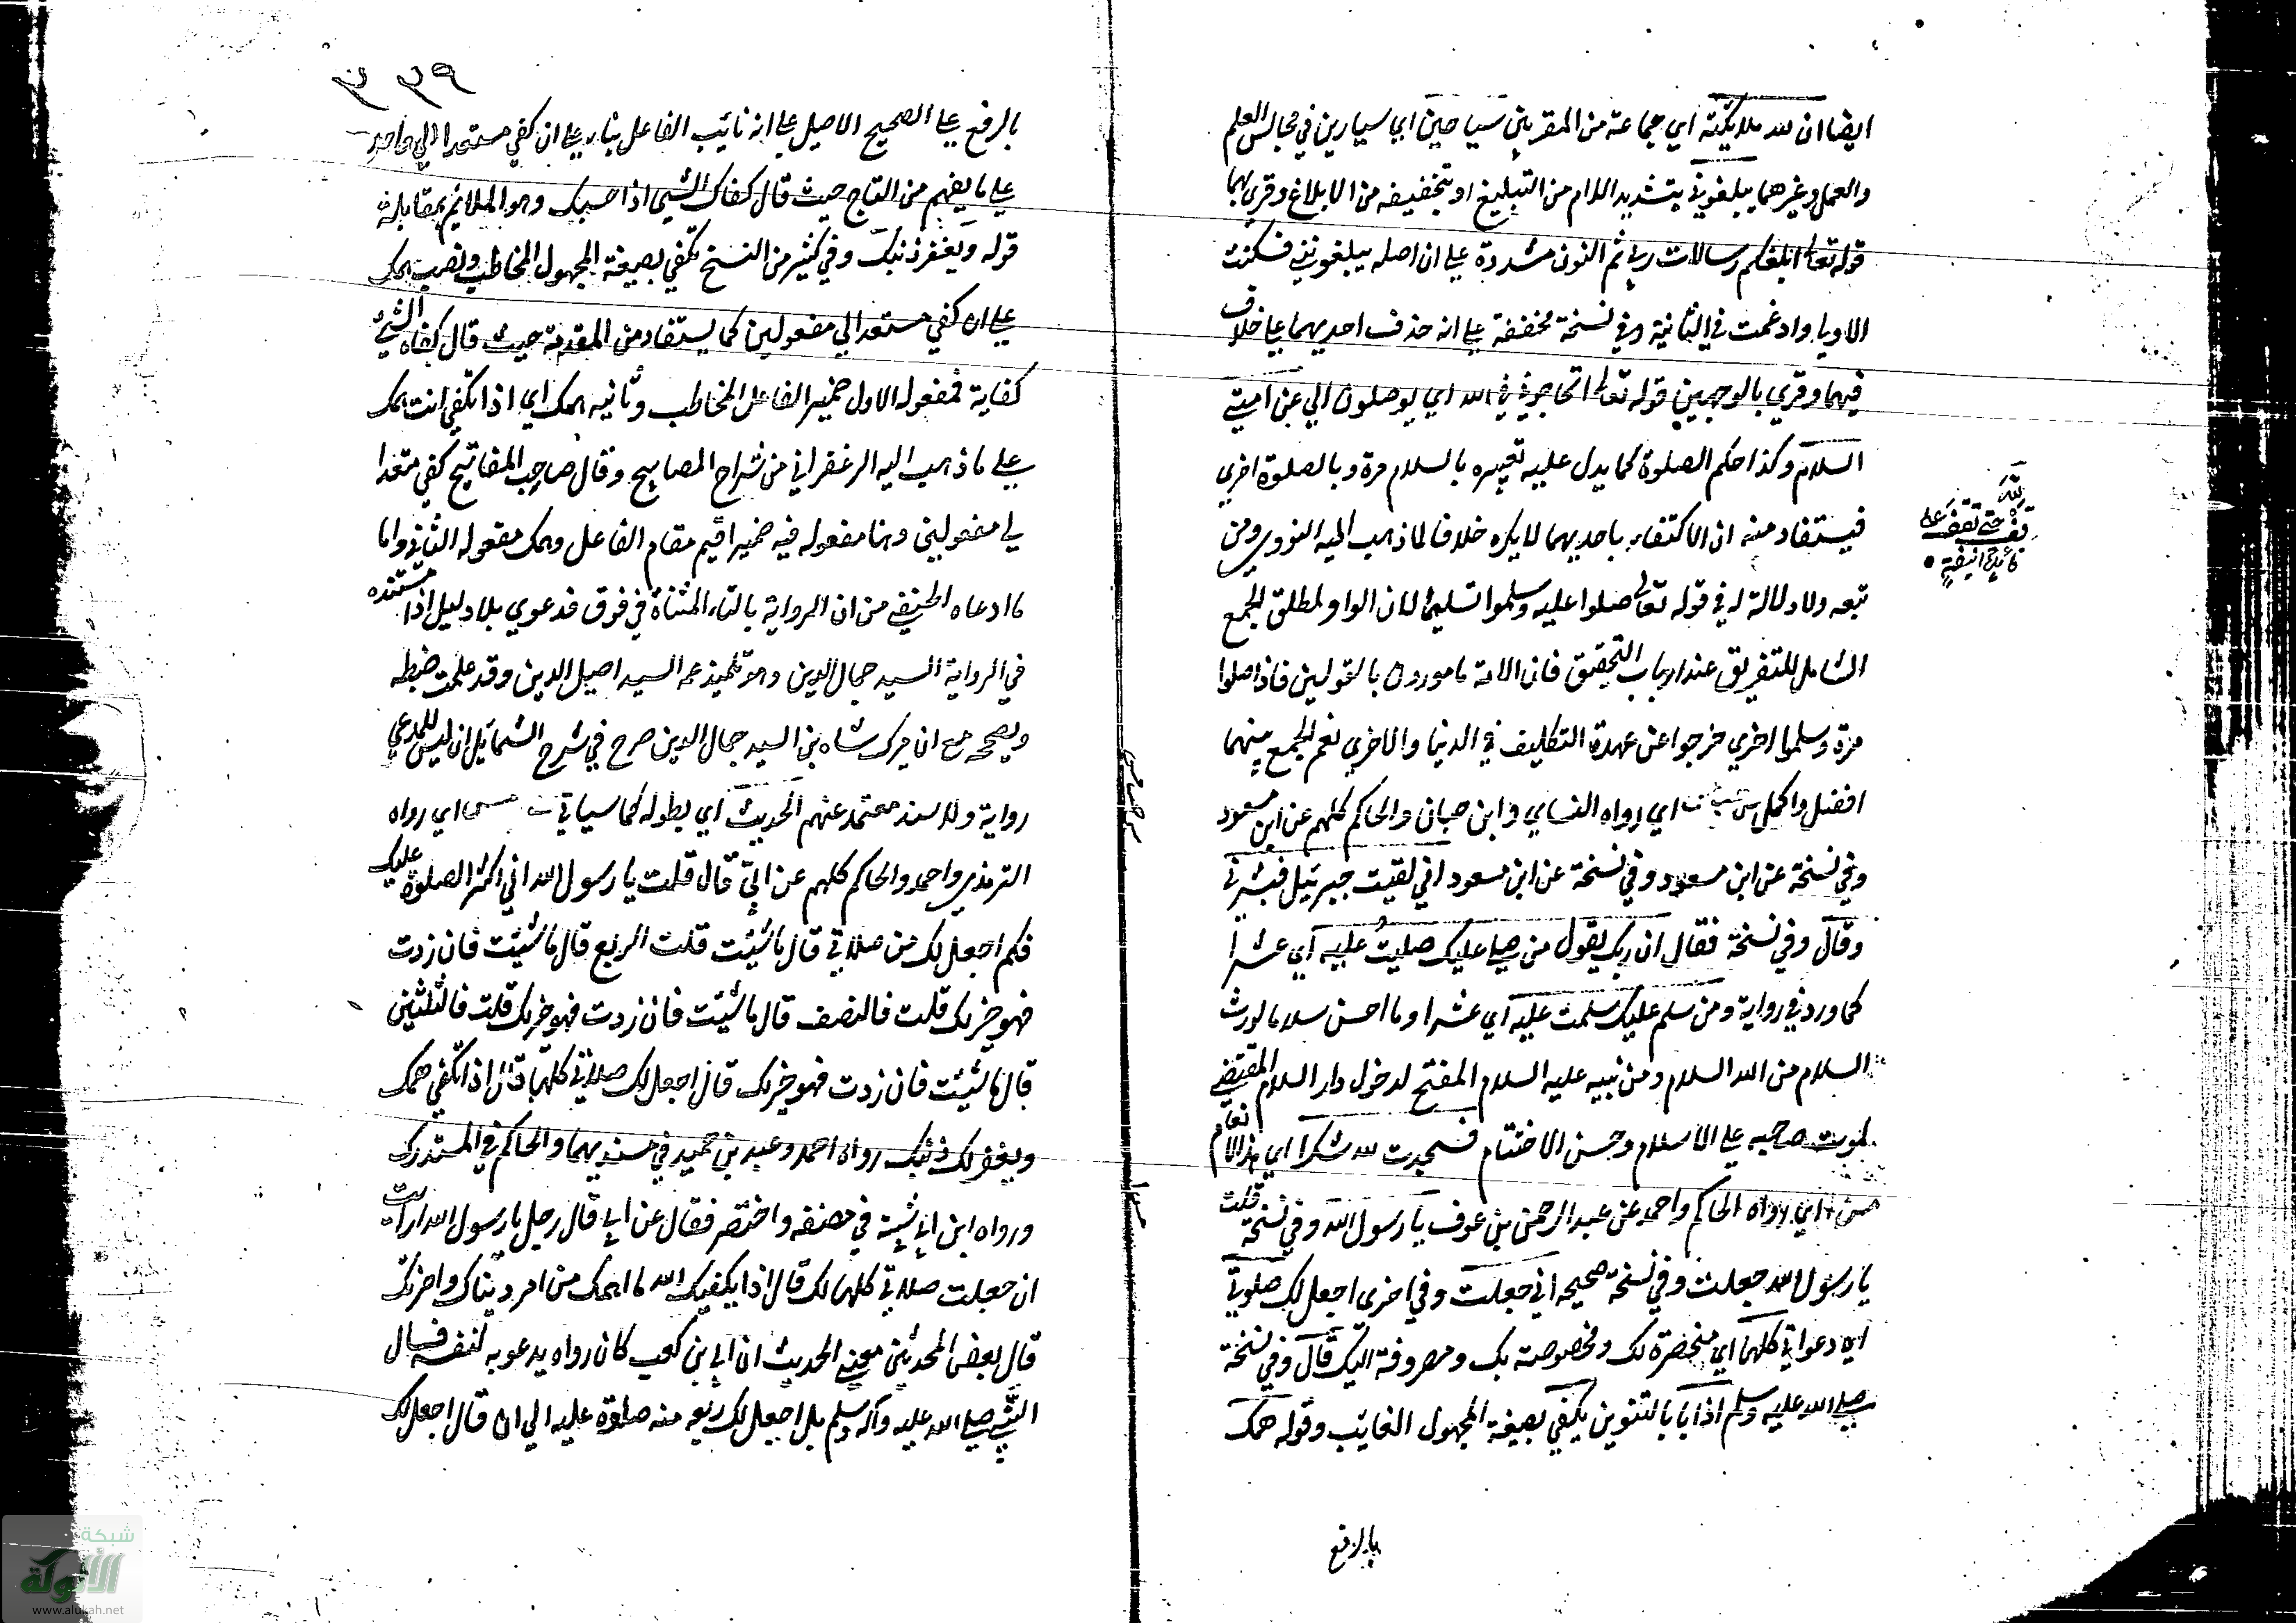 ايضا ان لله ملائكة اي جماعة من المقربين سياحين اي سيارين في مجالس العلم
والعمل وغيرهما يبلغوني بتشديد اللام من التبليغ او بتخفيفه من الابلاغ وقرئ بهما
قوله تعالى ابلغكم رسالات ربي ثم النون مشددة على ان اصله يبلغونني فسكنت
الاولى وادغمت في الثانية وفي نسخة مخففة على انه حذف احديهما على خلاف
فيهما وقرئ بالوجهين قوله تعالى اتحاجوني في الله اي يوصلون الي عن امتي
السلام وكذا حكم الصلوة كما يدل عليه تعبيره بالسلام مرة وبالصلوة اخرى
فيستفاد منه ان الاكتفاء باحديهما لا يكره خلافا لما ذهب اليه النووي ومن
تبعه ولا دلالة له في قوله تعالى صلوا عليه وسلموا تسليما لان الواو لمطلق الجمع
الشامل للتفريق عند ارباب التحقيق فان الامة مامورون بالقولين فاذا صلوا
مرة وسلموا اخرى خرجوا عن عهدة التكليف في الدنيا والاخرى نعم الجمع بينهما
افضل واكمل س حب مس اي رواه النسائي وابن حبان والحاكم كلهم عن ابن مسعود
وفي نسخة عن ابن مسعود وفي نسخة عن ابن مسعود اني لقيت جبرئيل فبشرني
وقال وفي نسخة فقال ان ربك يقول من صلى عليك صليت عليه اي عشرا
كما ورد في رواية ومن سلم عليك سلمت عليه اي عشرا وما احسن سلاما لورث
السلام من الله السلام ومن نبيه عليه السلام المفتح لدخول دار السلام المقتضي
لموت صاحبه على الاسلام وحسن الاختتام فسجدت لله شكرا اي لهذا الانعام
مس ا اي رواه الحاكم واحمد عن عبد الرحمن بن عوف يا رسول الله وفي نسخة قلت
يا رسول الله جعلت وفي نسخة صحيحه اني جعلت وفي اخرى اجعل لك صلوتي
اي دعواتي كلها اي منحصرة لك ومخصوصة بك ومصروفة اليك قال وفي نسخة
صلى الله عليه وسلم اذا بالتنوين يكفي بصيغة المجهول الغائب وقوله همك
بالرفع
لله
قف حتى تقف على
فائدة انيفة
٣٣٩
بالرفع على الصحيح الاصيل على انه نائب الفاعل بناء على ان كفي متعد الي واحد
على ما يفهم من التاج حيث قال كفاك الشيء اذا حسبك وهو الملائم بمقابلة
قوله ويغفر ذنبك وفي كثير من النسخ تكفي بصيغة المجهول المخاطب ونصب همك
على ان كفي متعد الي مفعولين كما يستفاد من المقدمة حيث قال كفاه الشيء
كفاية فمفعوله الاول ضمير الفاعل المخاطب وثانيه همك اي اذا تكفي انت همك
على ما ذهب اليه الزعفراني من شراح المصابيح وقال صاحب المفاتيح كفي متعد
الي مفعولين وهنا مفعوله فيه ضمير اقيم مقام الفاعل وهمك مفعوله الثاني واما
ما ادعاه الحنيفي من ان الرواية بالتاء المثناة في فوق فدعوي بلا دليل اذ مستنده
في الرواية السيد جمال الدين وهو تلميذ عمه السيد اصيل الدين وقد علمت ضبطه
وتصححه مع ان ميرك شاه بن السيد جمال الدين صرح في شرح الشمائل ان ليس للمدعي
رواية ولا سند معتمد عنهم الحديث اي بطوله كما سياتي ت مس ا اي رواه
الترمذي واحمد والحاكم كلهم عن ابي قال قلت يا رسول الله اني اكثر الصلوة عليك
فكم اجعل لك من صلاتي قال ما شئت قلت الربع قال ما شئت فان زدت
فهو خير لك قلت فالنصف قال ما شئت فان زدت فهو خير لك قلت فالثلثين
قال ما شئت فان زدت فهو خير لك قال اجعل لك صلاتي كلها قال اذا تكفي همك
ويغفر لك ذنبك رواه احمد وعبد بن حميد في مسنديهما والحاكم في المستدرك
ورواه ابن ابي شيبة في مصنفه واختصر فقال عن ابي قال رجل يا رسول الله ارايت
ان جعلت صلاتي كلها لك قال اذا يكفيك الله ما اهمك من امر دنياك واخرتك
قال بعض المحدثين معنى الحديث ان ابي بن كعب كان رواه يدعو به لنفسه فسال
النبي صلى الله عليه وآله وسلم بل اجعل لك ربعه منه صلوة عليه الي ان قال اجعل لك
شبكة
الألوكة
www.alukah.net